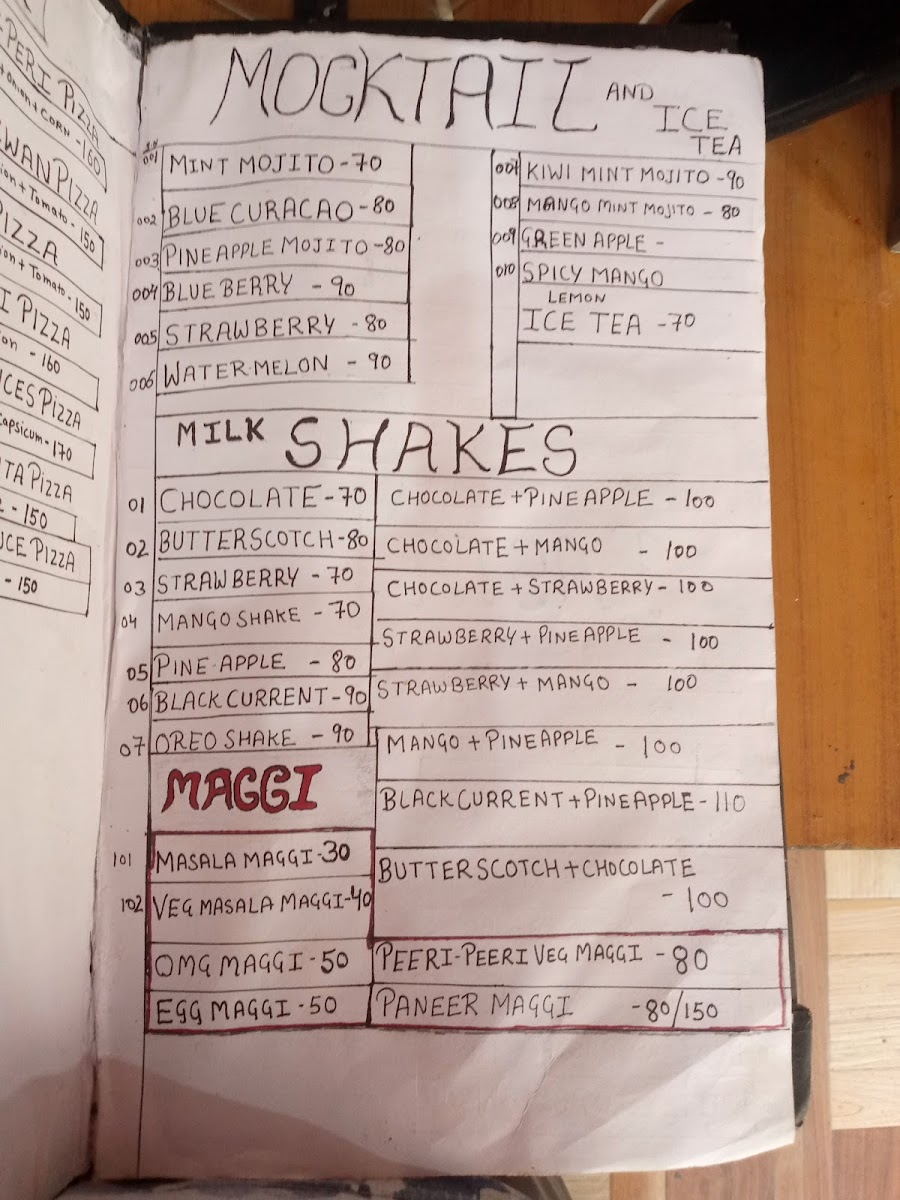 PERI PIZZA
+ Onion + CORN - 160
WAN PIZZA
ion + Tomato - 150
PIZZA
ion + Tomato - 150
I PIZZA
on - 160
CES PIZZA
Capsicum - 170
TA PIZZA
- 150
CE PIZZA
- 150
MOCKTAIL AND ICE TEA
001 MINT MOJITO - 70
002 BLUE CURACAO - 80
003 PINEAPPLE MOJITO - 80
004 BLUE BERRY - 90
005 STRAWBERRY - 80
006 WATER MELON - 90
007 KIWI MINT MOJITO - 90
008 MANGO MINT MOJITO - 80
009 GREEN APPLE -
010 SPICY MANGO
LEMON
ICE TEA - 70
MILK SHAKES
01 CHOCOLATE - 70
02 BUTTERSCOTCH - 80
03 STRAWBERRY - 70
04 MANGO SHAKE - 70
05 PINE-APPLE - 80
06 BLACK CURRENT - 90
07 OREO SHAKE - 90
CHOCOLATE + PINEAPPLE - 100
CHOCOLATE + MANGO - 100
CHOCOLATE + STRAWBERRY - 100
STRAWBERRY + PINEAPPLE - 100
STRAWBERRY + MANGO - 100
MANGO + PINEAPPLE - 100
BLACK CURRENT + PINEAPPLE - 110
BUTTERSCOTCH + CHOCOLATE
- 100
MAGGI
101 MASALA MAGGI - 30
102 VEG MASALA MAGGI - 40
OMG MAGGI - 50
EGG MAGGI - 50
PEERI-PEERI VEG MAGGI - 80
PANEER MAGGI - 80/150